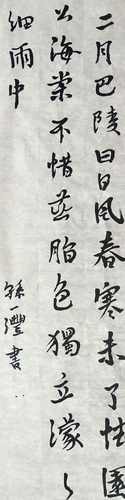 二月巴陵日日風春寒未了怯園
公海棠不惜燕脂色獨立濛〻
細雨中
孫灃書